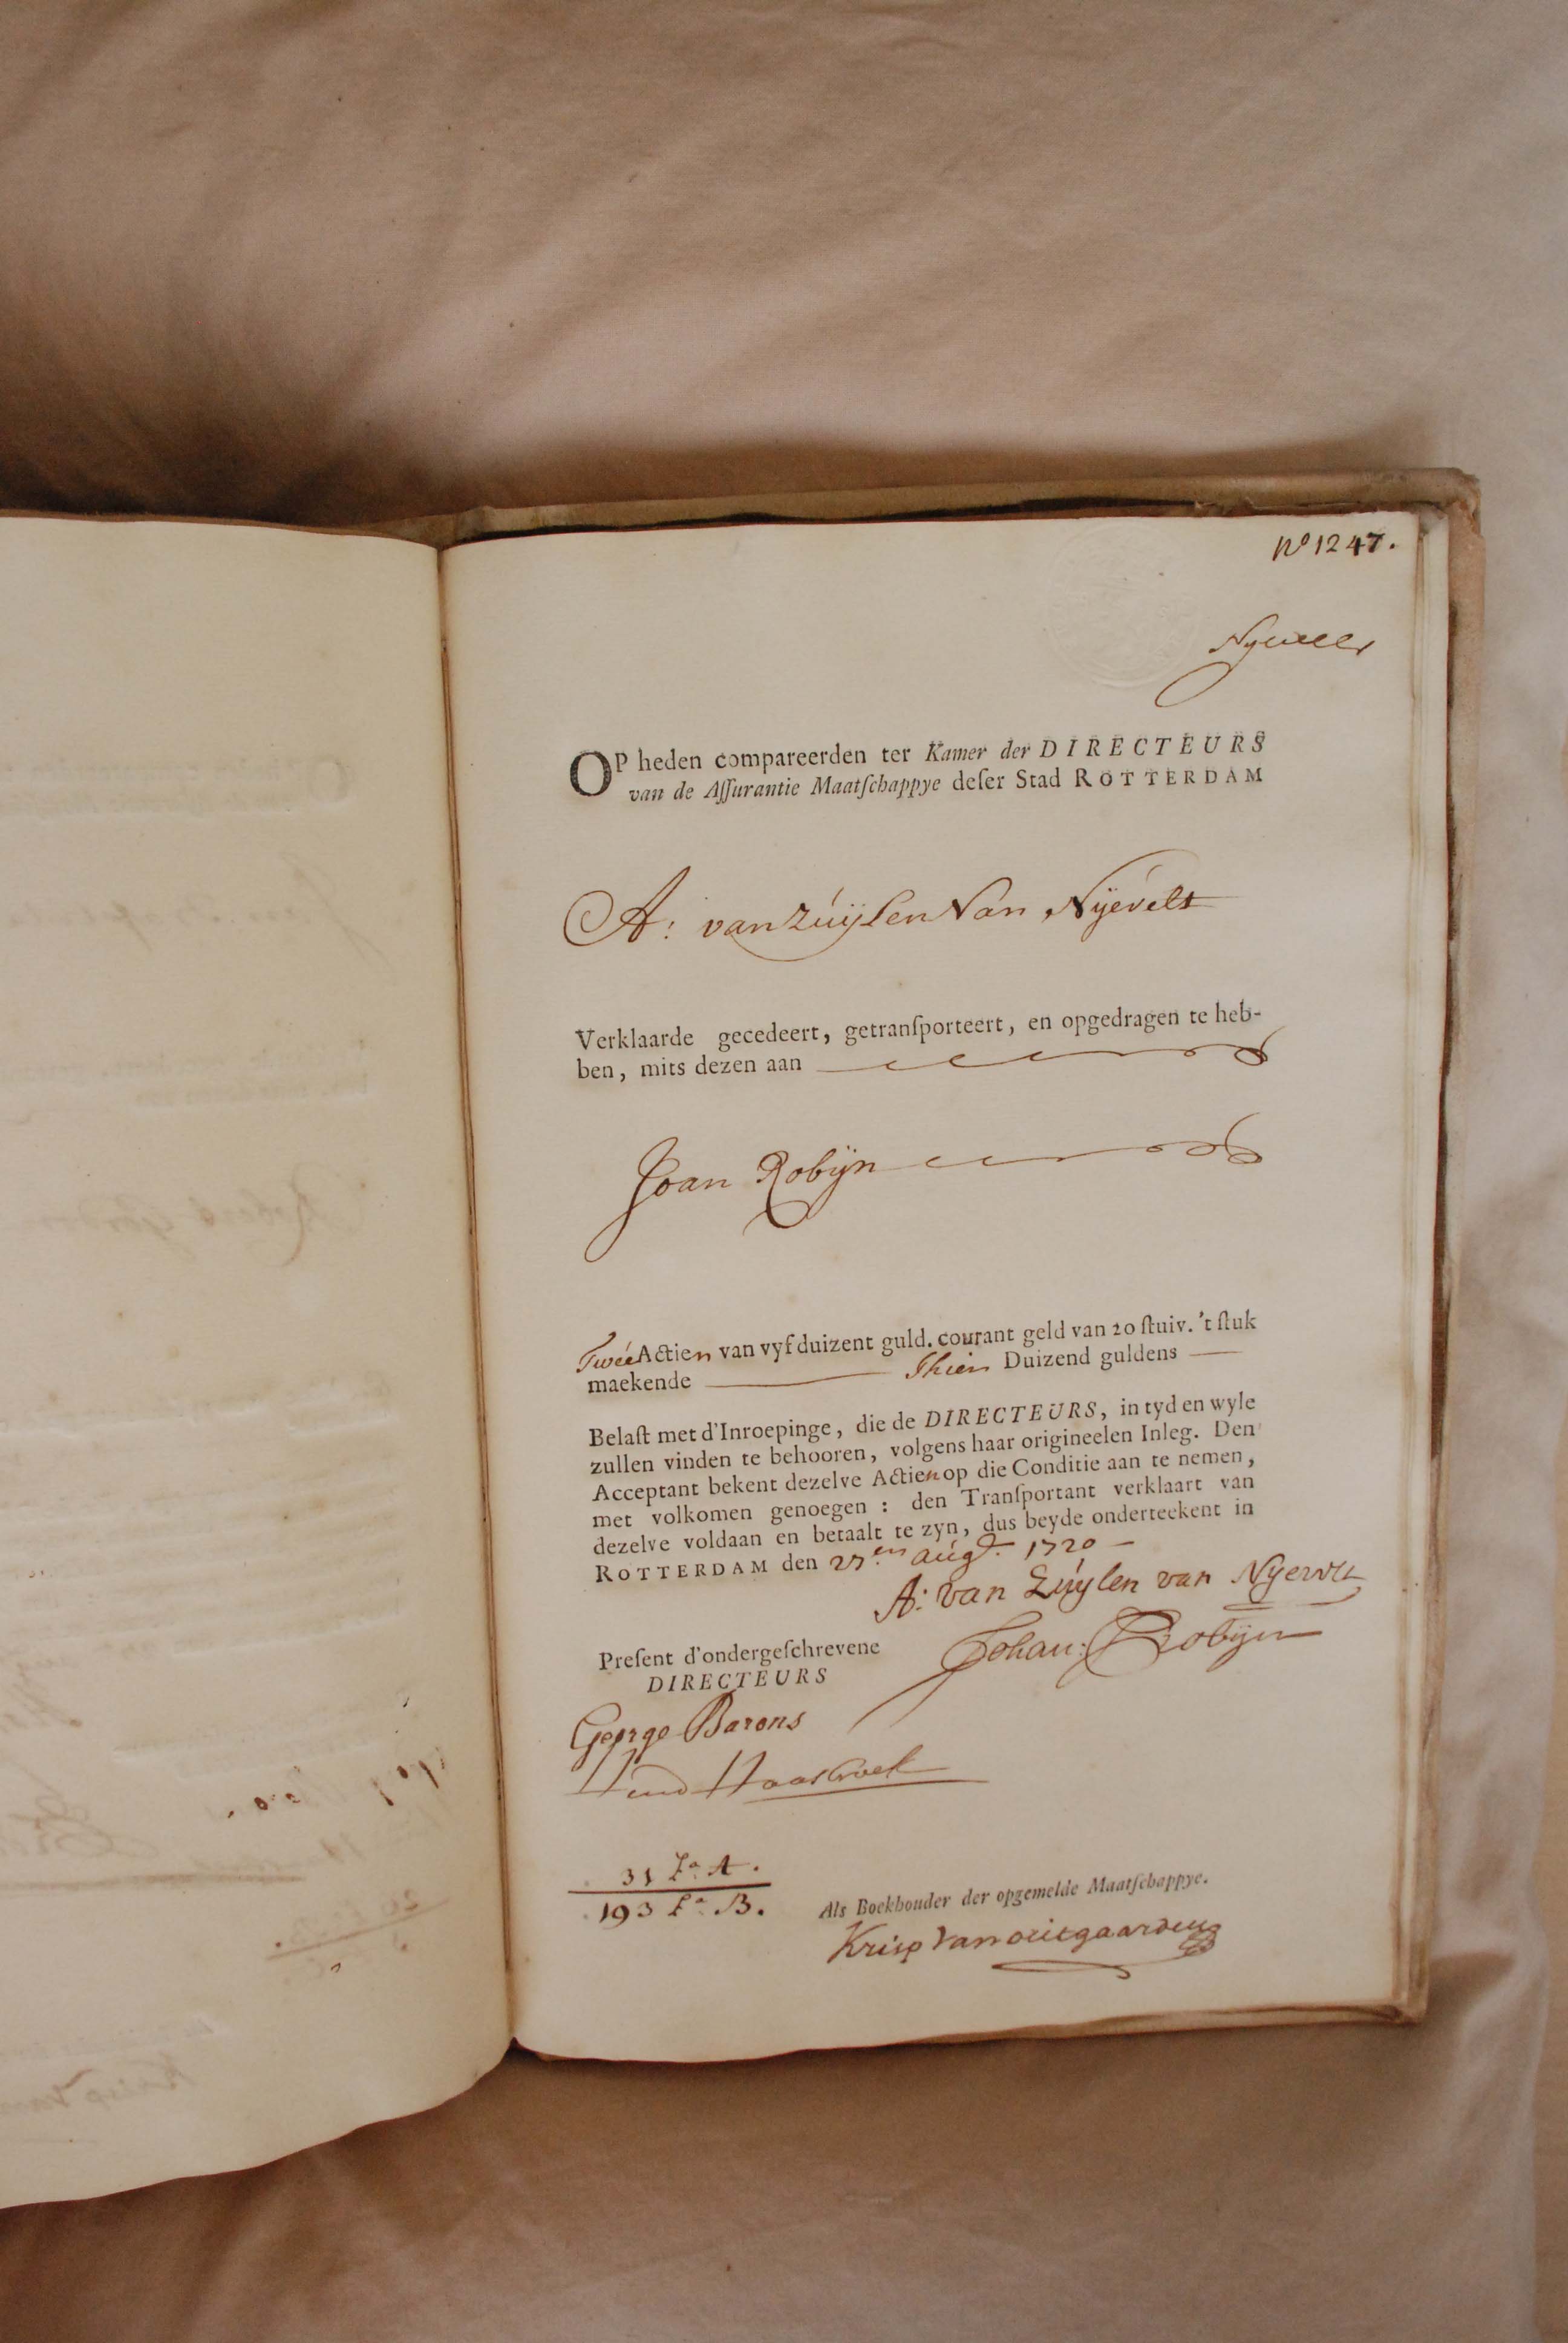 No 1247.
OP heden compareerden ter Kamer der DIRECTEURS
van de Aſſurantie Maatſchappye deſer Stad ROTTERDAM
A: van Zúijlen Van Nÿevelt
Verklaarde gecedeert, getranſporteert, en opgedragen te heb-
ben, mits dezen aan
Joan Robÿn
Tweé Actien van vyf duizent guld. courant geld van 20 ſtuiv. 't ſtuk
maekende Thien Duizend guldens
Belaſt met d'Inroepinge, die de DIRECTEURS, in tyd en wyle
zullen vinden te behooren, volgens haar origineelen Inleg. Den
Acceptant bekent dezelve Actien op die Conditie aan te nemen,
met volkomen genoegen : den Tranſportant verklaart van
dezelve voldaan en betaalt te zyn, dus beyde onderteekent in
ROTTERDAM den 27.en aúgt. 1720
A: van Zúylen van Nyevelt
Johan: Robijn
Preſent d'ondergeſchrevene
DIRECTEURS
George Barons
31 La A.
193 La B.
Als Boekhouder der opgemelde Maatſchappye.
Krisp Van outgaarden